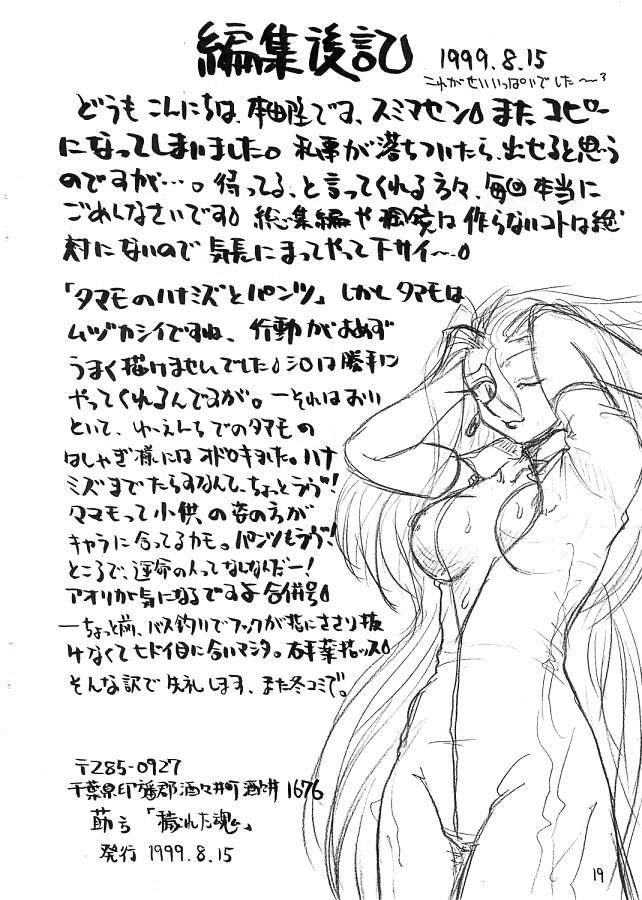 編集後記 1999.8.15
これがせいいっぱいでした〜
どうもこんにちは、本田です、スミマセン またコピー
になってしまいました。私事が落ちついたら、出せると思う
のですが…。待ってる、と言ってくれる方々、毎回本当に
ごめんなさいです 総集編や は作らないコトは絶
対にないので気長にまってやって下サイ〜
「タマモのハナミズとパンツ」しかしタマモは
ムヅカシイですね、行動がおめず
うまく描けませんでした シロは勝手に
やってくれるんですが。—それはおい
といて、ゆーえんちでのタマモの
はしゃぎ様にはオドロキました。ハナ
ミズまでたらすなんて、ちょっとラヴ!
タマモって小供の姿の方が
キャラに合ってるカモ。パンツもラヴ!
ところで、運命の人ってなんなんだー!
アオリが気になるですよ合併号
—ちょっと前、バス釣りでフックが指にささり抜
けなくてヒドイ目に合いマシタ。
そんな訳で失礼します、また冬コミで。
〒285-0927
千葉県印旛郡酒々井町酒々井1676
「穢れた魂」
発行 1999.8.15
19